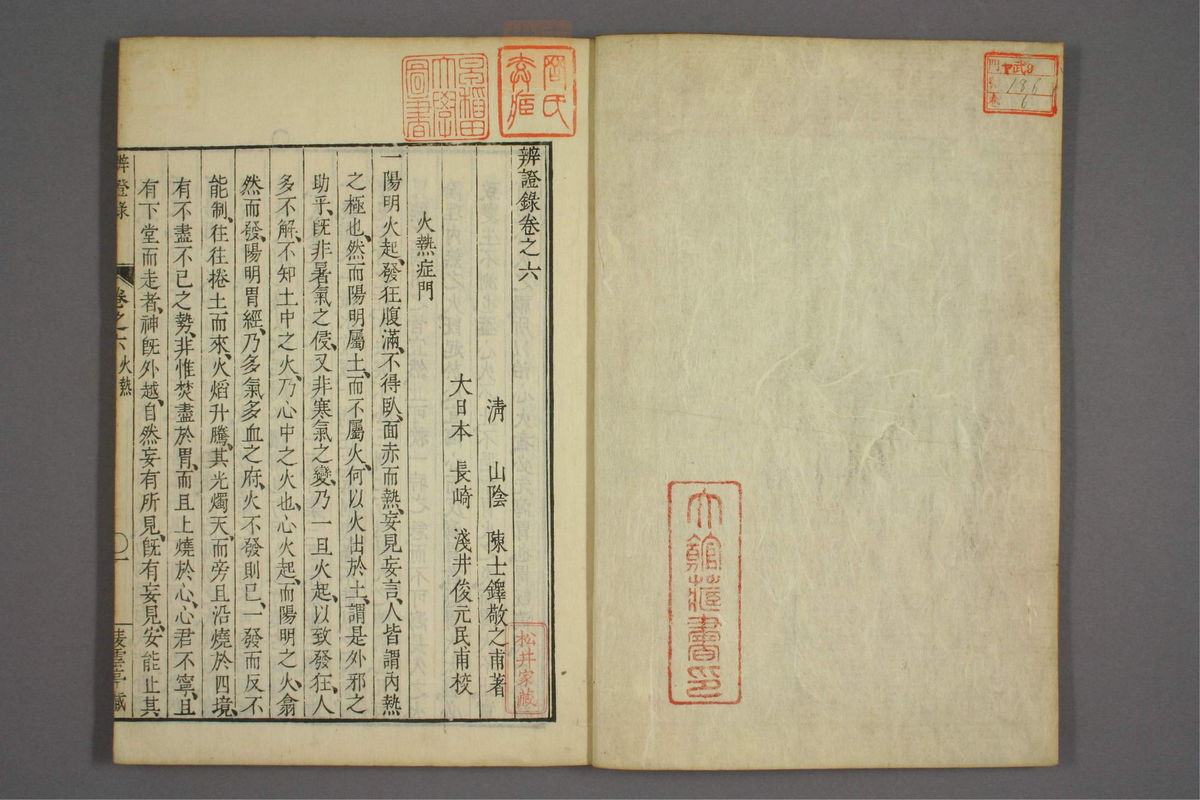 門 武9
號 186
卷 6
岡氏
圖書
早稻田
大學
圖書
辨證錄卷之六
清 山陰 陳士鐸敬之甫著
大日本 長崎 淺井俊元民甫校
松井家藏
火熱症門
一陽明火起、發狂腹滿、不得臥、面赤而熱、妄見妄言、人皆謂內熱
之極也、然而陽明屬土、而不屬火、何以火出於土、謂是外邪之
助乎、既非暑氣之侵、又非寒氣之變、乃一旦火起、以致發狂、人
多不解、不知土中之火、乃心中之火也、心火起、而陽明之火、翕
然而發、陽明胃經、乃多氣多血之府、火不發則已、一發而反不
能制、往往捲土而來、火焰升騰、其光燭天、而旁且沿燒於四境、
有不盡不已之勢、非惟焚盡於胃、而且上燒於心、心君不寧、且
有下堂而走者、神既外越、自然妄有所見、既有妄見、安能止其
辨證錄 卷之六 火熱 〇一